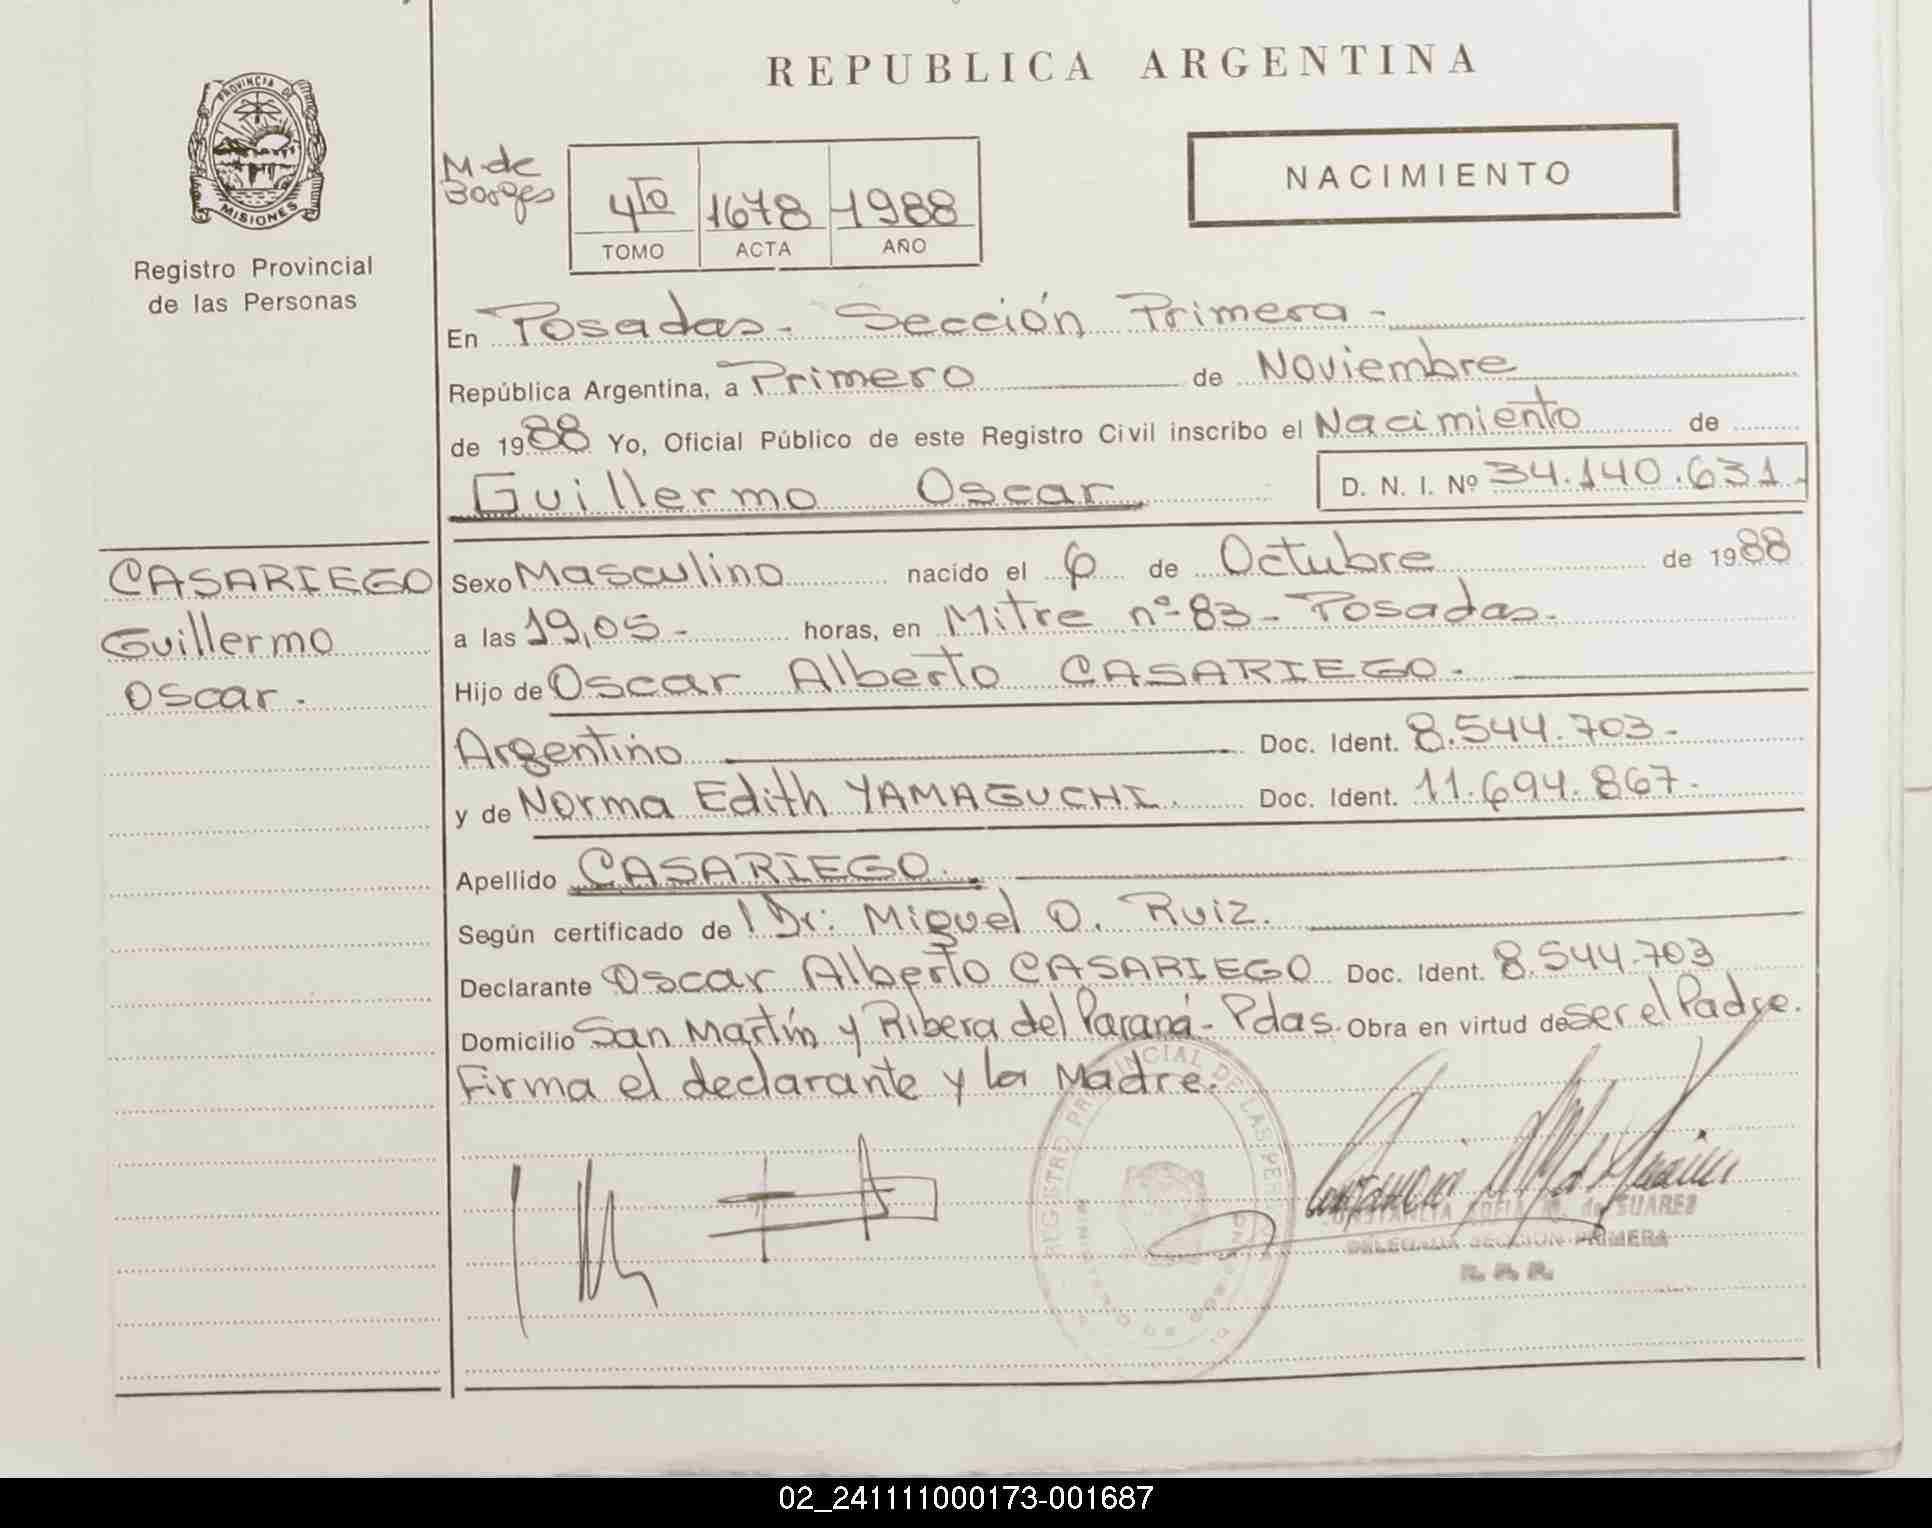 REPUBLICA ARGENTINA
PROVINCIA DE
MISIONES
Registro Provincial
de las Personas
M de
Borges
4to 1678 1988
TOMO ACTA AÑO
NACIMIENTO
En Posadas - Sección Primera -
República Argentina, a Primero de Noviembre
de 1988 Yo, Oficial Público de este Registro Civil inscribo el Nacimiento de
Guillermo Oscar D. N. I. Nº 34.140.631.
CASARIEGO
Guillermo
Oscar.
Sexo Masculino nacido el 6 de Octubre de 1988
a las 19,05 - horas, en Mitre nº 83 - Posadas.
Hijo de Oscar Alberto CASARIEGO.
Argentino Doc. Ident. 8.544.703 -
y de Norma Edith YAMAGUCHI. Doc. Ident. 11.694.867.
Apellido CASARIEGO.
Según certificado de l Dr: Miguel O. Ruiz.
Declarante Oscar Alberto CASARIEGO Doc. Ident. 8.544.703
Domicilio San Martín y Ribera del Paraná - Pdas. Obra en virtud de ser el Padre.
Firma el declarante y la Madre.
REGISTRO PROVINCIAL DE LAS PER
CONSTANCIA ADELA M. de SUAREZ
DELEGADA SECCION PRIMERA
R. P. P.
02_241111000173-001687